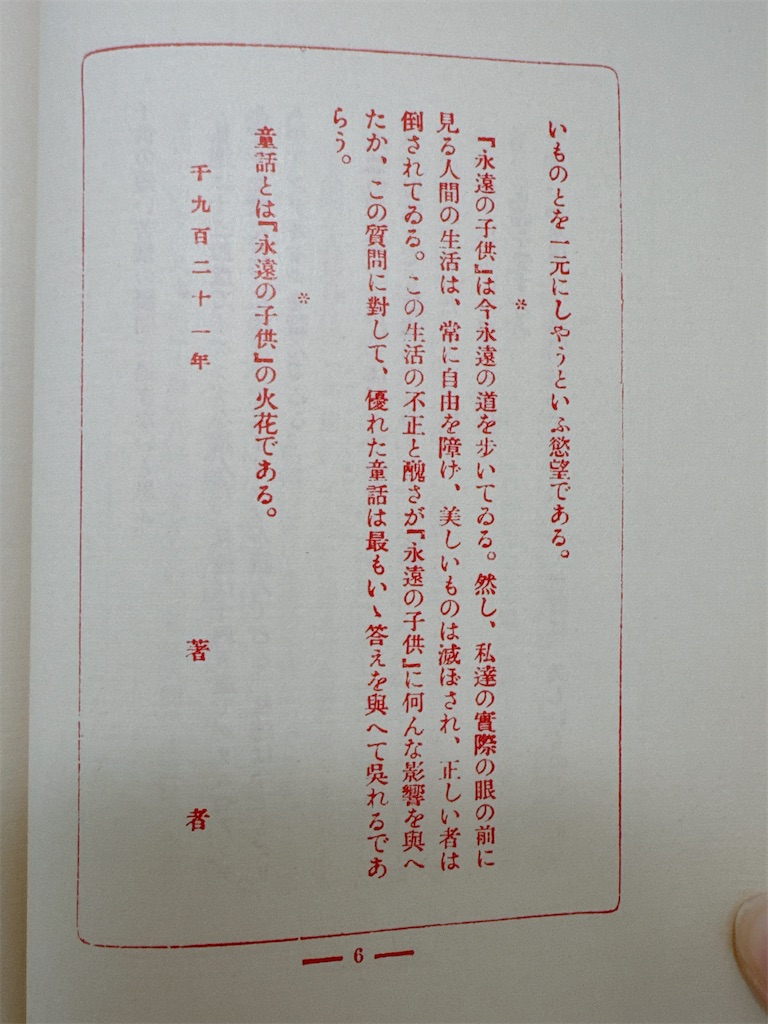 いものとを一元にしやうといふ慾望である。
※
『永遠の子供』は今永遠の道を歩いてゐる。然し、私達の實際の眼の前に
見る人間の生活は、常に自由を障げ、美しいものは滅ぼされ、正しい者は
倒されてゐる。この生活の不正と醜さが『永遠の子供』に何んな影響を與へ
たか、この質問に對して、優れた童話は最もいゝ答えを與へて呉れるであ
らう。
※
童話とは『永遠の子供』の火花である。
千九百二十一年
著者
6